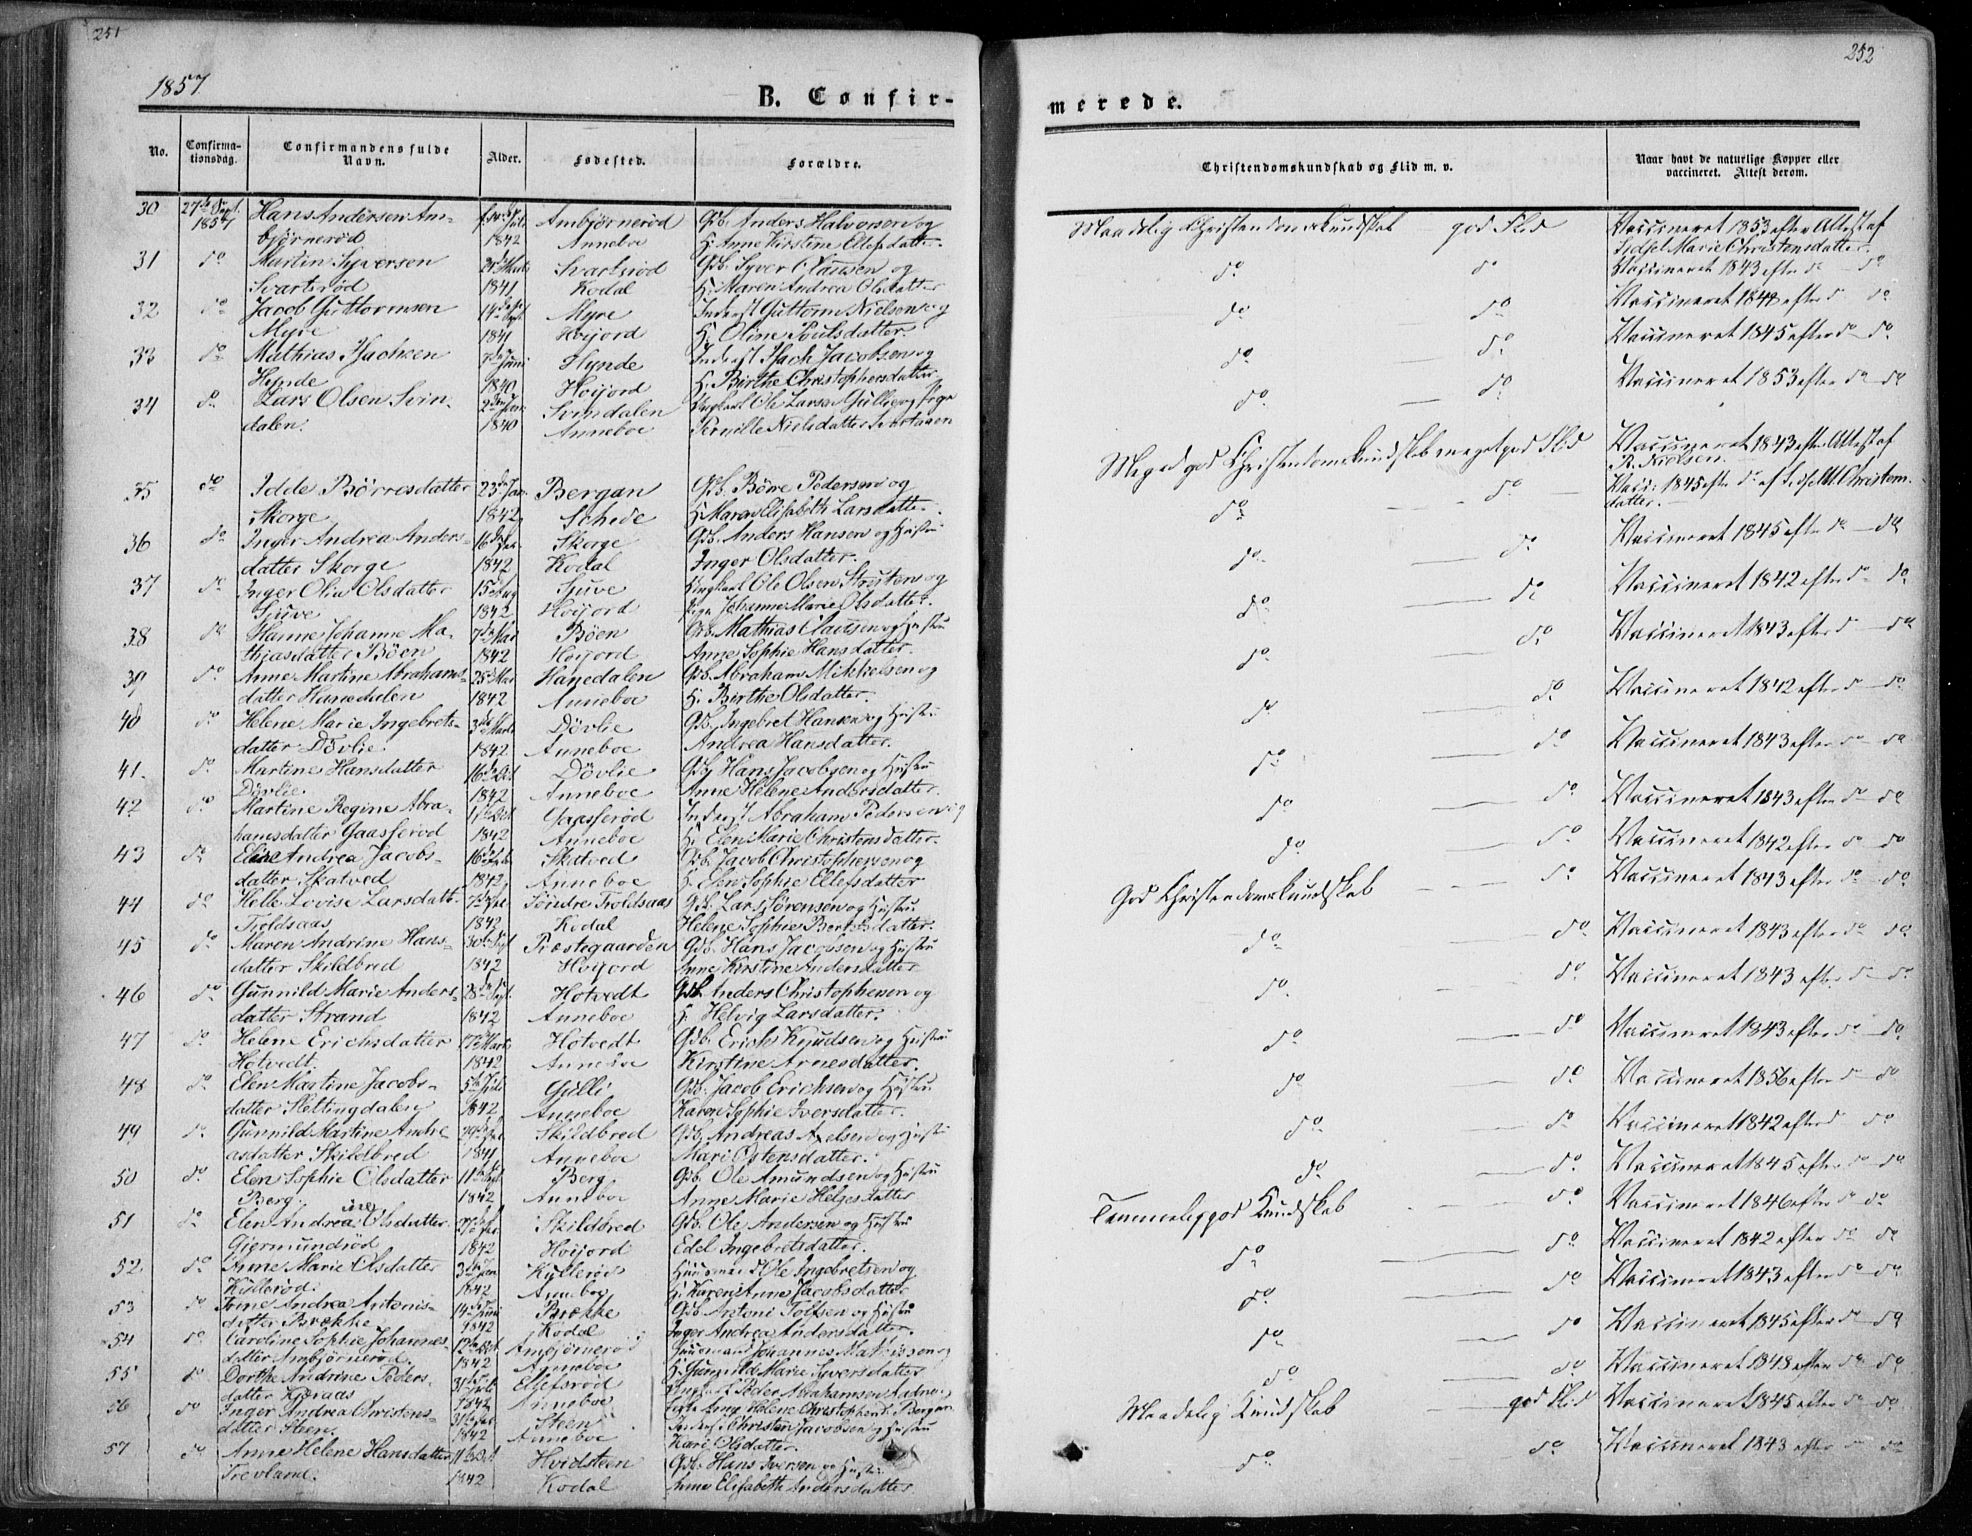 251
252
1857.
B. Confir-
merede.
No.
Confirma-
tionsdag.
Confirmandens fulde
Navn.
Alder.
Fødested.
Forældre.
Christendomskundskab og Flid m. v.
Naar havt de naturlige Kopper eller
vaccineret. Attest derom.
30 27de Sept. Hans Andersen Am- Juli Ambjørnerød Gdb. Anders Halvorsen og Maadelig Christendomskundskab god Flid Vaccineret 1853 efter Attest af
1857 bjørnerød 1842 Anneboe H. Anne Kirstine Ellefsdatter Sidsel Marie Christensdatter.
31 do Martin Syversen Marts Svartsrød Gdb. Syver Clausen og do do Vaccineret 1843 efter do do
Svartsrød 1841 Kodal H. Maren Andrea Olsdatter
32 do Jacob Guttormsen 14de Sept Myre Inderst Guttorm Nielsen og do do Vaccineret efter do do
Myre 1841 Høijord H. Oline Poulsdatter.
33 do Mathias Isachsen 7de Juni Hynde Inderst Isach Jacobsen og do do Vaccineret 1845 efter do do
Hynde 1840 Høijord H. Birthe Christophersdatter.
34 do Lars Olsen Svin- 2den Svindalen Ungkarl Ole Larsen Gulli og Pige do do Vaccineret 1853 efter do do
dalen. 1840 Anneboe Pernille Nielsdatter
35 do Idde Børresdatter 23de Jan. Bergan Gdb. Børre Pedersen og Meget god Christendomskundskab meget god Flid Vaccineret 1843 efter Attest af
R. Nielsen.
Skorge 1842 Schede H. Maren Elisabeth Larsdatter
36 do Inger Andrea Anders- 16de Skorge Gdb. Anders Hansen og Hustru do do Vacc: 1845 efter do af Sidsel M. Christens-
datter.
datter Skorge 1842 Kodal Inger Olsdatter.
37 do Inger Olia Olsdatter 15de Aug Sjuve Ungkarl Ole Olsen og do do Vaccineret 1845 efter do do
Sjuve 1842 Høijord Pige Johanne Marie Olsdatter.
38 do Hanne Johanne Ma- 7de Bøen Gdb. Mathias Clausen og Hustru do do Vaccineret 1842 efter do do
thiasdatter Bøen 1842 Høijord Anne Sophie Hansdatter.
39 do Anne Martine Abrahams- 25de Hanedalen Gdb. Abraham Mikkelsen og do do Vaccineret 1843 efter do do
datter Hanedalen 1842 Anneboe H. Birthe Olsdatter.
40 do Helene Marie Ingebrets- 3de Marts Døvlie Gdb. Ingebret Hansen og Hustru do do Vaccineret 1842 efter do do
datter Døvlie. 1842 Anneboe Andrea Hansdatter.
41. do Martine Hansdatter 16de Oct Døvlie Gdb. Hans Jacobsen og Hustru do do Vaccineret 1843 efter do do
Døvlie. 1842 Anneboe Anne Helene Andersdatter.
42 do Martine Regine Abra- Oct Gaasserød Inderst Abraham Pedersen og do do Vaccineret 1843 efter do do
hamsdatter Gaasserød 1842 Anneboe H. Elen Marie Christensdatter.
43 do Andrea Jacobs- 16de Skatved Gdb. Jacob Christophersen og do do Vaccineret 1842 efter do do
datter Skatved 1842 Anneboe H. Elen Sophie Ellefsdatter
44 do Helle Lovise Larsdatt- Søndre Troldsaas Gdb. Lars Sørensen og Hustru God Christendomskundskab do Vaccineret 1843 efter do do
Troldsaas 1842 Kodal Helene Sophie datter.
45 do Maren Andrine Hans- 30te Sept Præstegaarden Gdb. Hans Jacobsen og Hustru do do Vaccineret 1843 efter do do
datter Skildbred 1842 Høijord Anne Kirstine Andersdatter
46 do Gunnild Marie Anders- 28de Sept. Hotvedt Gdb. Anders Christophersen og do do Vaccineret 1843 efter do do
datter Strand 1842 Anneboe H. Helvig Larsdatter.
47 do Helene Erichsdatter 17de Marts Hotvedt Gdb. Erich Knudsen og Hustru do do Vaccineret 1843 efter do do
Hotvedt. 1842 Anneboe Kirstine Arnesdatter.
48 do Elen Martine Jacobs- 5te Juli Gulli Gdb. Jacob Erichsen og Hustru. do do Vaccineret 1856 efter do do
datter Slettingdalen 1842 Anneboe Karen Sophie Iversdatter.
49 do Gunnild Martine Andre- 29de Skildbred Gdb. Andreas Axelsen og Hustru do do Vaccineret 1842 efter do do
asdatter Skildbred 1841 Anneboe Mari Ostensdatter.
50 do Elen Sophie Olsdatter 11te Sept Berg Gdb. Ole Amundsen og Hustru do do Vaccineret 1845 efter do do
Berg. 1842 Anneboe Anne Marie Helgesdatter
51 do Elen Andrea Olsdatter 27de Skildbred Gdb. Ole Andersen og Hustru Temmelig god Kundskab do Vaccineret 1846 efter do do
Gjermundrød 1842 Høijord Edel Ingebretsdatter.
52 do Anne Marie Olsdatter 3die Jan Kyllerød Huusmand Ole Ingebretsen og do do Vaccineret 1842 efter do do
Kyllerød. 1842 Anneboe H. Karen Anne Jacobsdatter
53 do Andrea Antonis- 14de Juni Brække Gdb. Antoni Tolfsen og Hustru do do Vaccineret 1843 efter do do
datter Brække 1842 Kodal Inger Andrea Andersdatter.
54 do Caroline Sophie Johannes- 12te Oct. Ambjørnerød Huusmand Johannes Mathissen og do do Vaccineret 1845 efter do do
datter Ambjørnerød. 1842 Anneboe H. Gunnilde Marie Syversdatter
55 do Dorthe Andrine Peders- 31te Juli Ellefsrød Peder Abrahamsen do do Vaccineret 1848 efter do do
datter Kjæraas 1842 Anneboe Pige Helene Christophersd. Bergan
56 do Inger Andrea Christens- 31te Steen Inderst Christen Jacobsen og Hustru Maadelig Kundskab god Flid Vaccineret 1845 efter do do
datter Steen. 1842 Anneboe Kari Olsdatter.
57 do Anne Helene Hansdatter Oct Hvidsteen Gdb. Hans Iversen og Hustru do do Vaccineret 1843 efter do do
Trevland. 1842 Kodal Anne Elisabeth Andersdatter